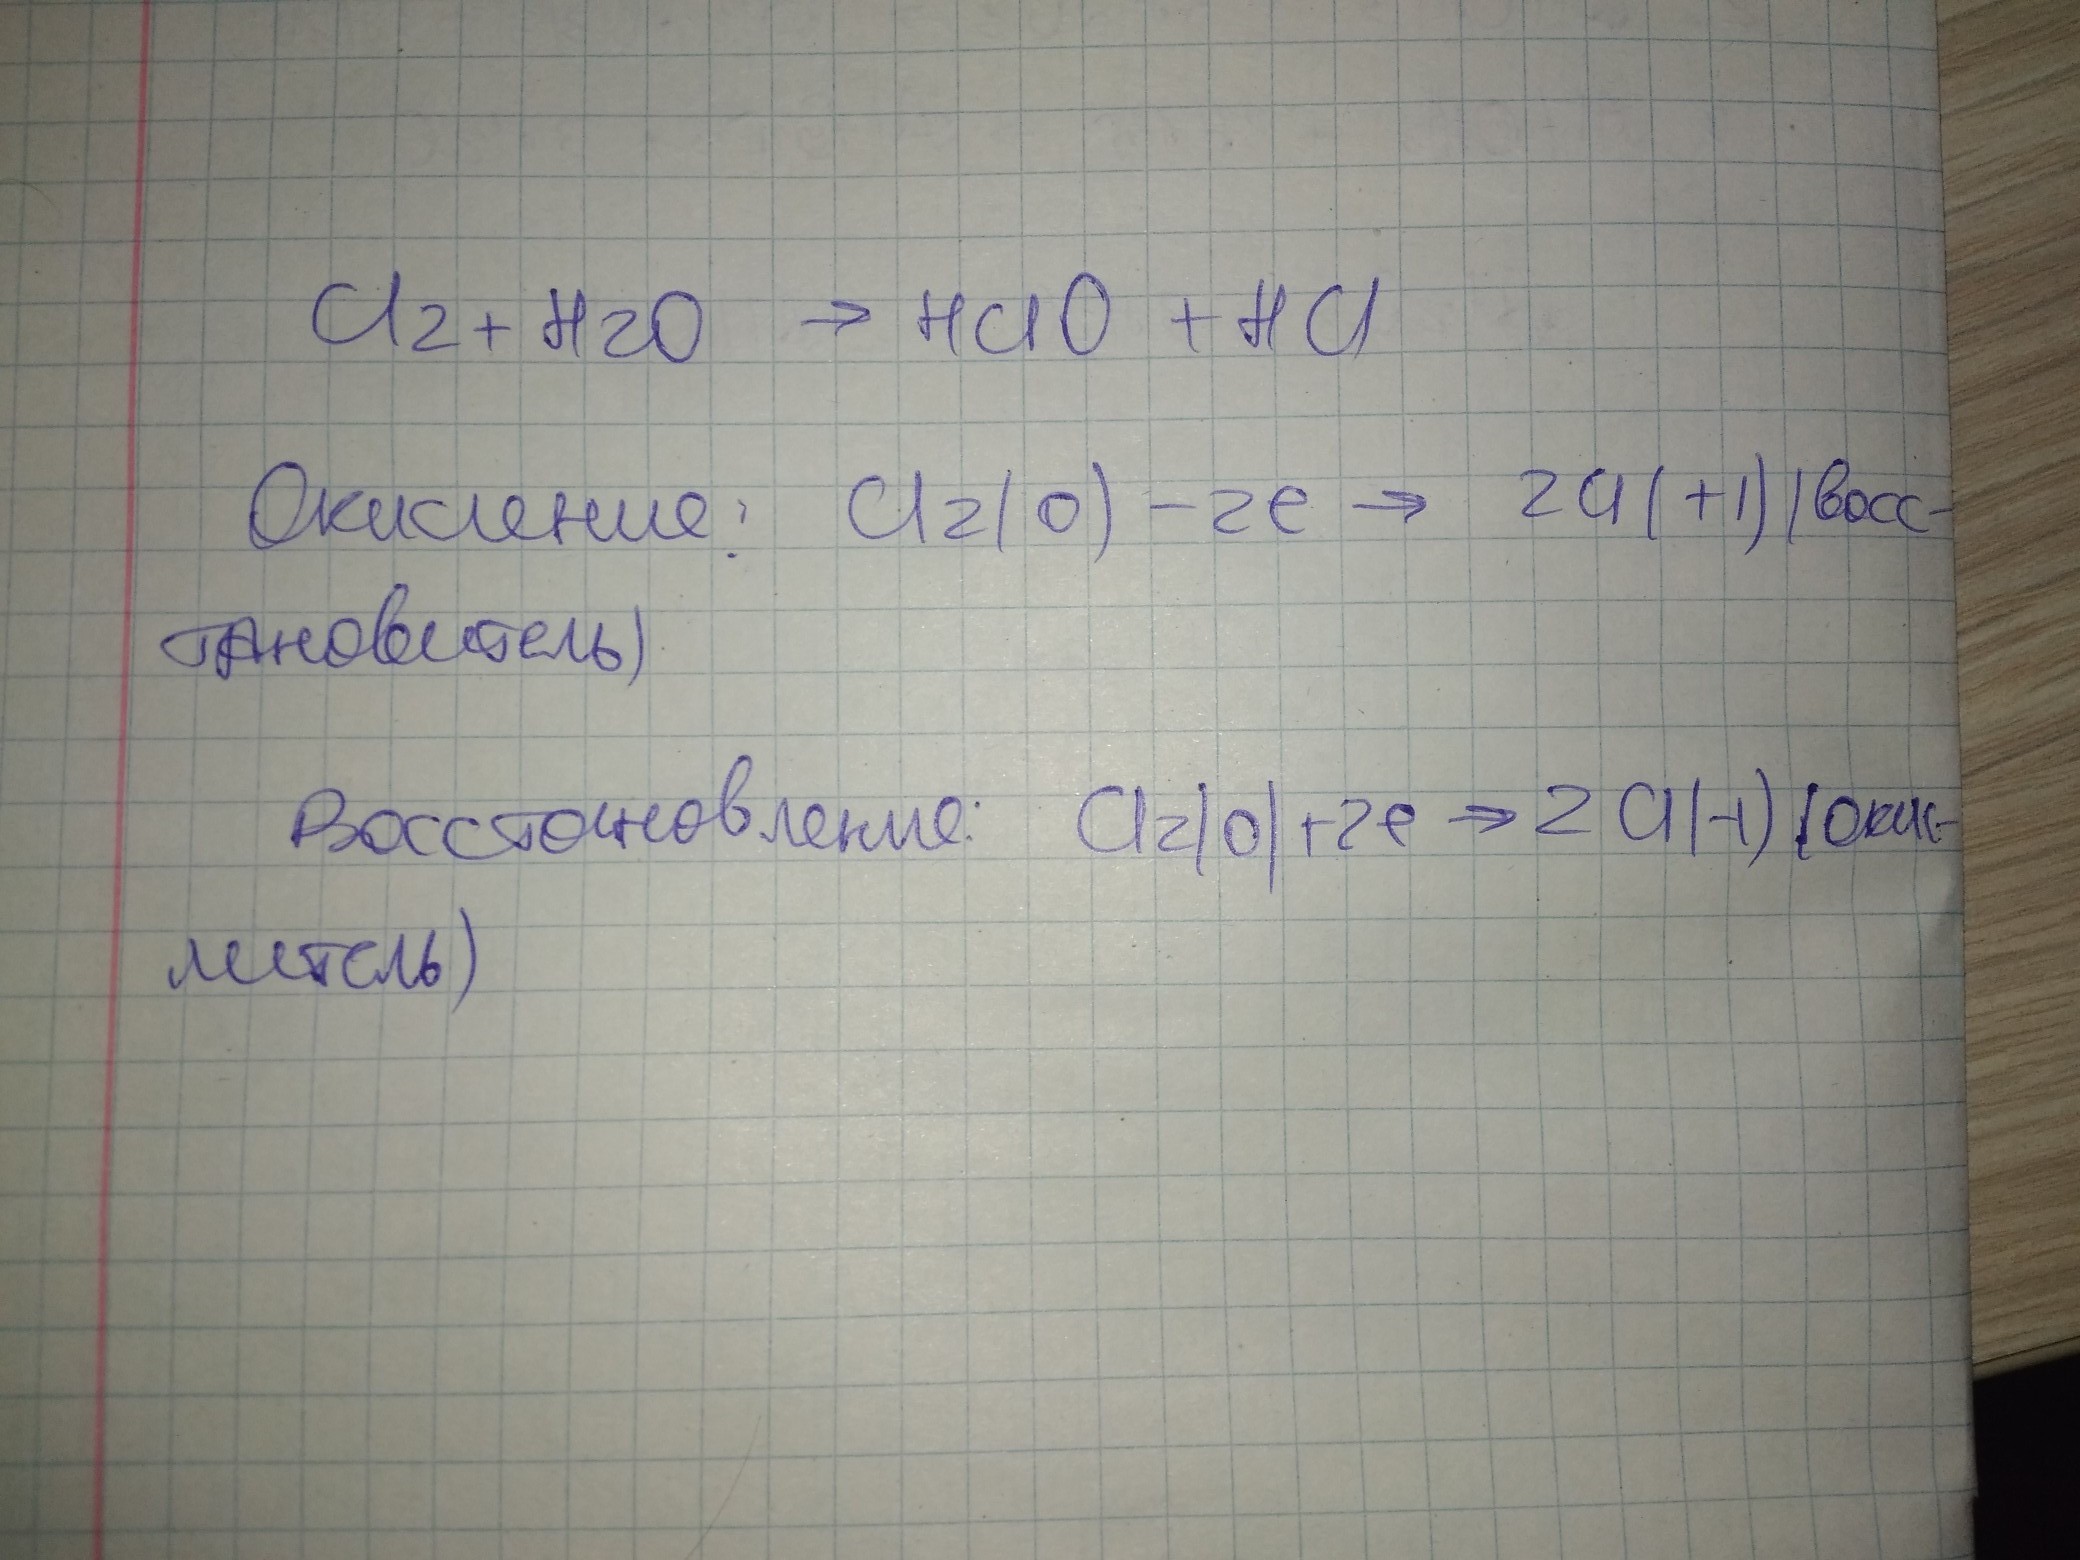 Cl2 + H2O → HClO + HCl
Окисление: Cl2(0) - 2e → 2Cl(+1) (восс-
тановитель)
Восстановление: Cl2(0) + 2e → 2Cl(-1) (окис-
литель)